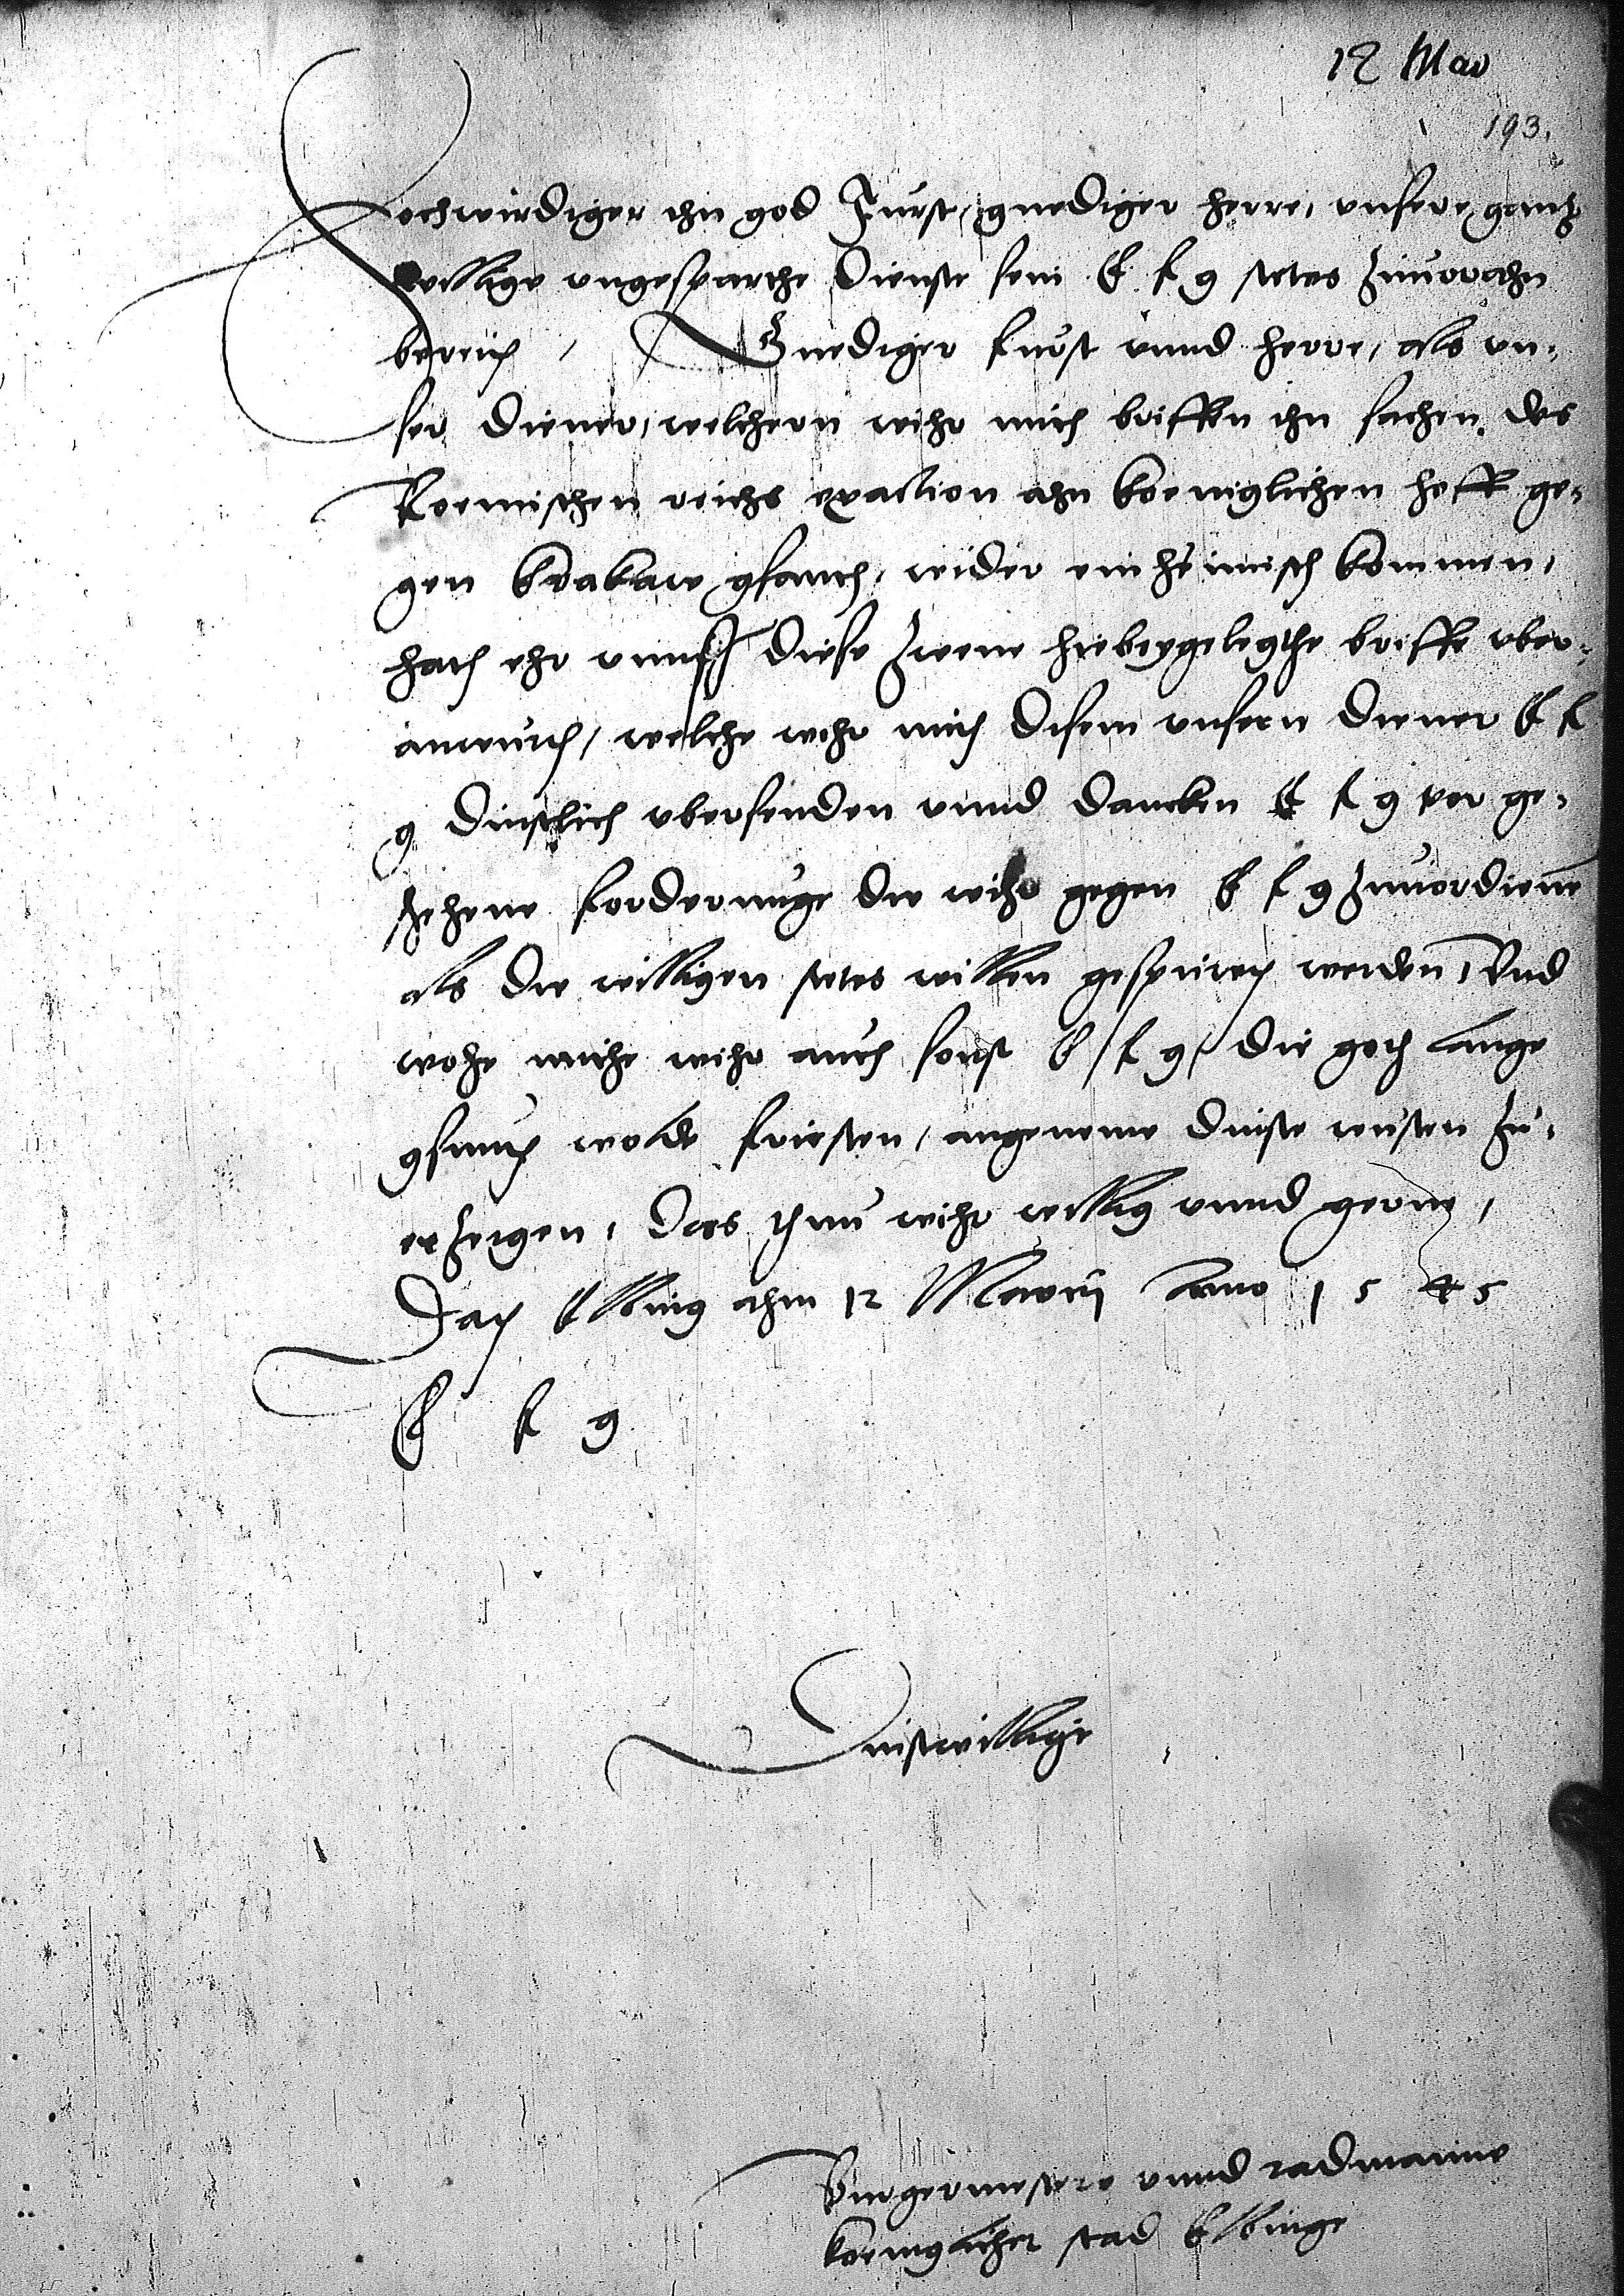 12 Mar
193.
Hochwirdiger ihn god Furst, gnediger herre, unsere gantz
willige ungesparthe dienste sein E f g stetes zuuorahn
bereith, Gnediger furst unnd herre, als un-
ser diener, welchern wihr mith briffen ihn sachen des
Roemischen reichs exaction ahn koeniglichen hoff ge-
gen krakaw gsanth, wider einheimisch kommen,
hath ehr unnss diese zwene hiebeygelegthe briffe uber-
anwurth, welche wihr mith disem unsern diener E f
g dinstlich ubersenden unnd dancken E f g vor ge-
schehene forderunge die wihr gegen E f g zuuordiene
als die willigen stetes willen gespureth werden, Und
wohe mithe wihr auch sonst E f g, die goth lange
gsunth wolde fristen, angeneme dinste wusten zu-
erzeigen, das thun wihr willig unnd gerne,
Dath Elbing ahm 12 Martij Anno 1545
E f g
Dinstwillige
Burgermestere unnd radmanne
koeniglicher stad Elbinge